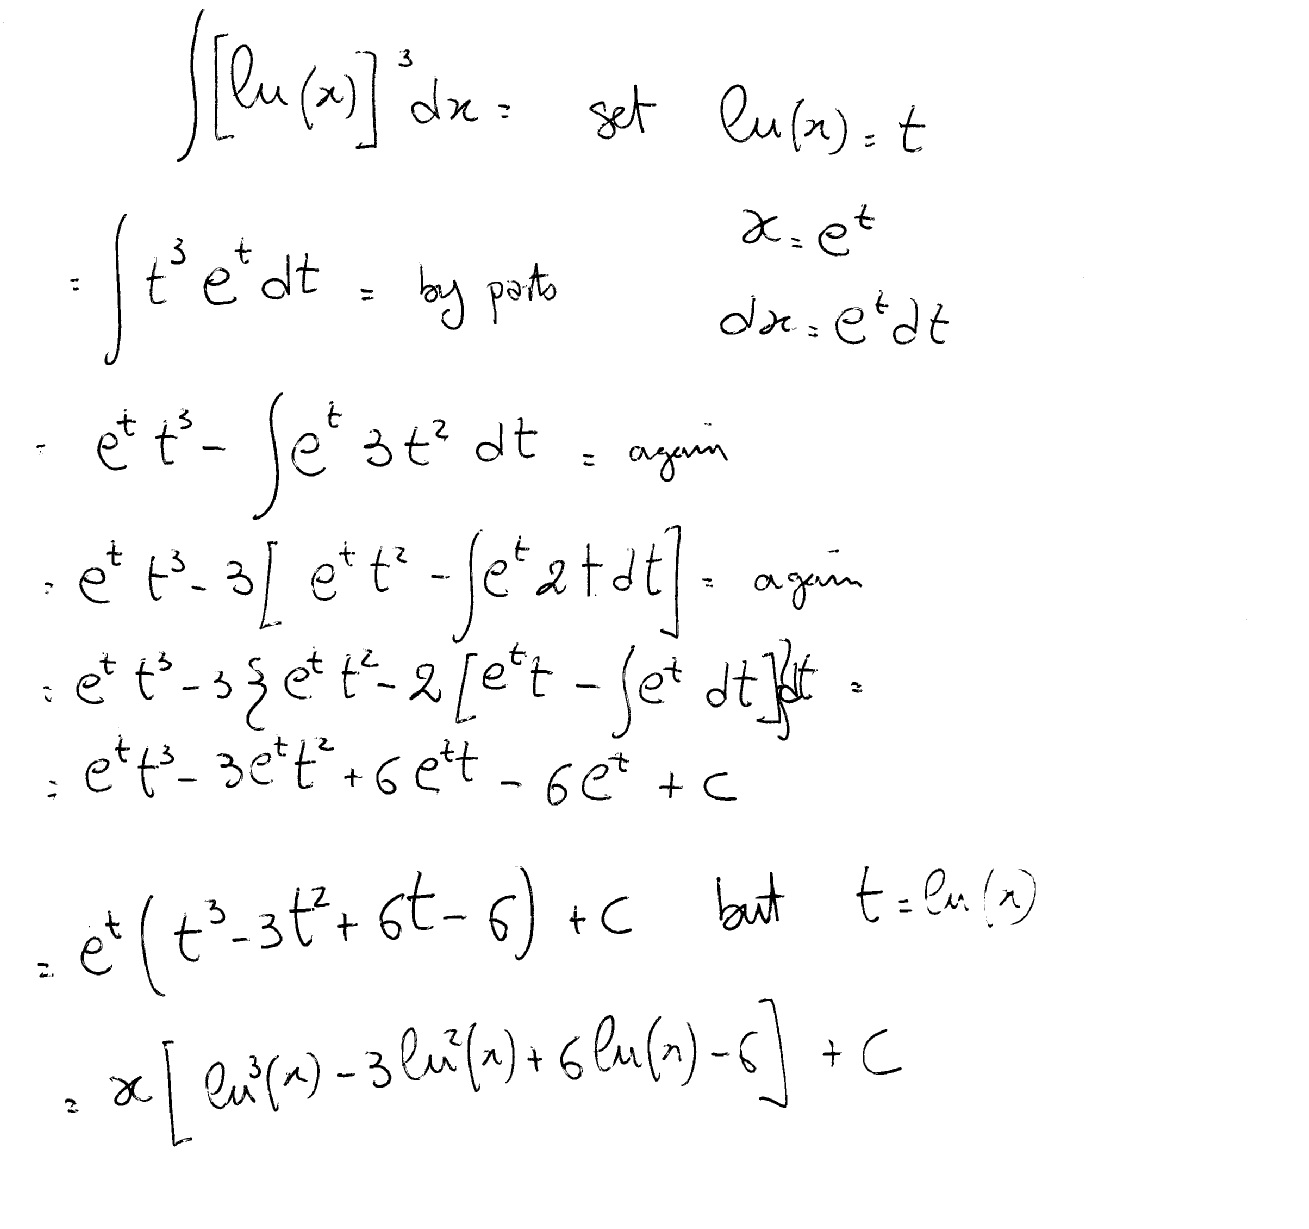 ∫[ln(x)]³dx = set ln(x) = t
x = eᵗ
= ∫t³eᵗdt = by parts
dx = eᵗdt
= eᵗt³ - ∫eᵗ3t² dt = again
= eᵗt³ - 3[eᵗt² - ∫eᵗ2tdt] = again
= eᵗt³ - 3{eᵗt² - 2[eᵗt - ∫eᵗ dt]} =
= eᵗt³ - 3eᵗt² + 6eᵗt - 6eᵗ + c
= eᵗ(t³ - 3t² + 6t - 6) + c but t = ln(x)
= x[ln³(x) - 3ln²(x) + 6ln(x) - 6] + c